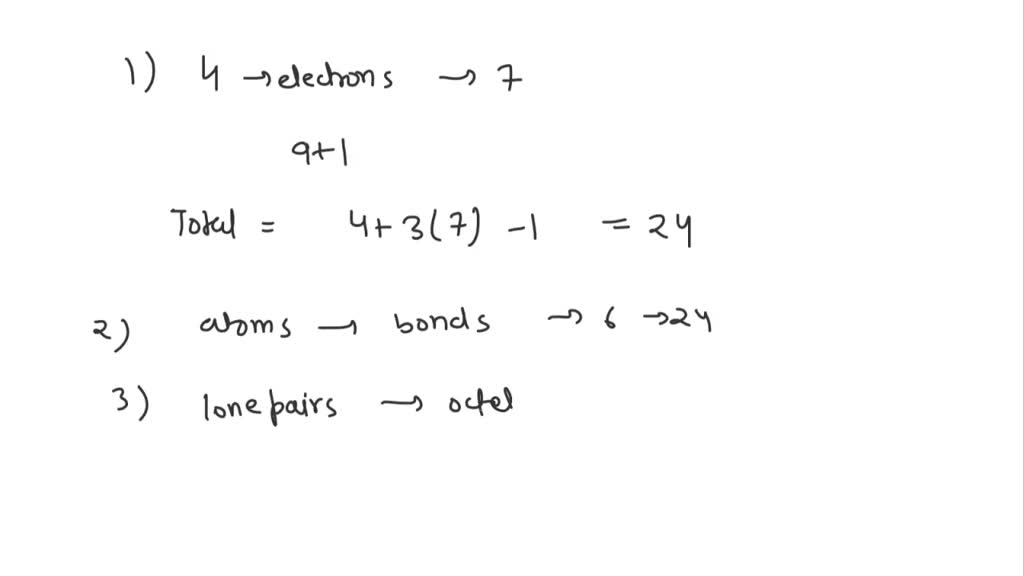 1) 4 → electrons → 7
9+1
Total = 4+3(7) -1 = 24
2) atoms → bonds → 6 → 24
3) lone pairs → octel